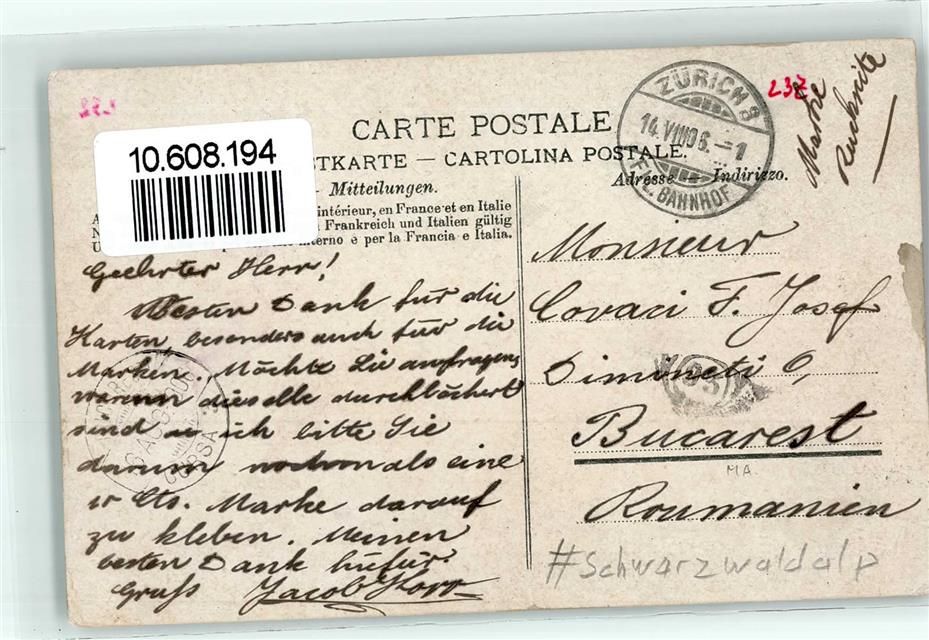 237
Marke
Rückseite
ZÜRICH 8
14.VIII06.–1
FIL. BAHNHOF
CARTE POSTALE
10.608.194
STKARTE — CARTOLINA POSTALE.
– Mitteilungen.
Adresse – Indirizzo.
intérieur, en France et en Italie
Frankreich und Italien gültig
interno è per la Francia e Italia.
Geehrter Herr!
Besten Dank für die
Karten, besonders auch für die
Marken. Möchte Sie anfragen,
warum dieselbe durchlöchert
sind u. ich bitte Sie
darum nochmals eine
10 Cts. Marke darauf
zu kleben. Meinen
besten Dank hiefür.
Gruss Jacob Horr
Monsieur
Covaci F. Josef
Dimoncti 9,
Bucarest
MA.
Roumanien
#Schwarzwaldalp